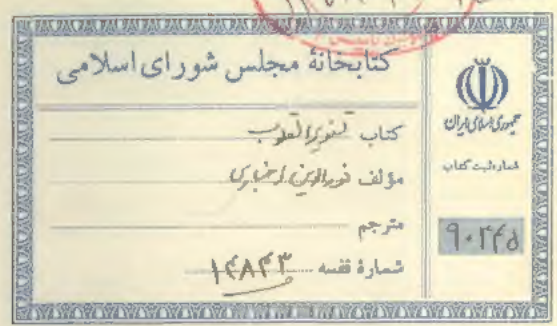 کتابخانهٔ مجلس شورای اسلامی
کتاب تنویر القلوب
مؤلف نورالدین اخباری
مترجم
شمارهٔ قفسه ۱۴۸۴۳
جمهوری اسلامی ایران
شماره ثبت کتاب
۹۰۲۴۵